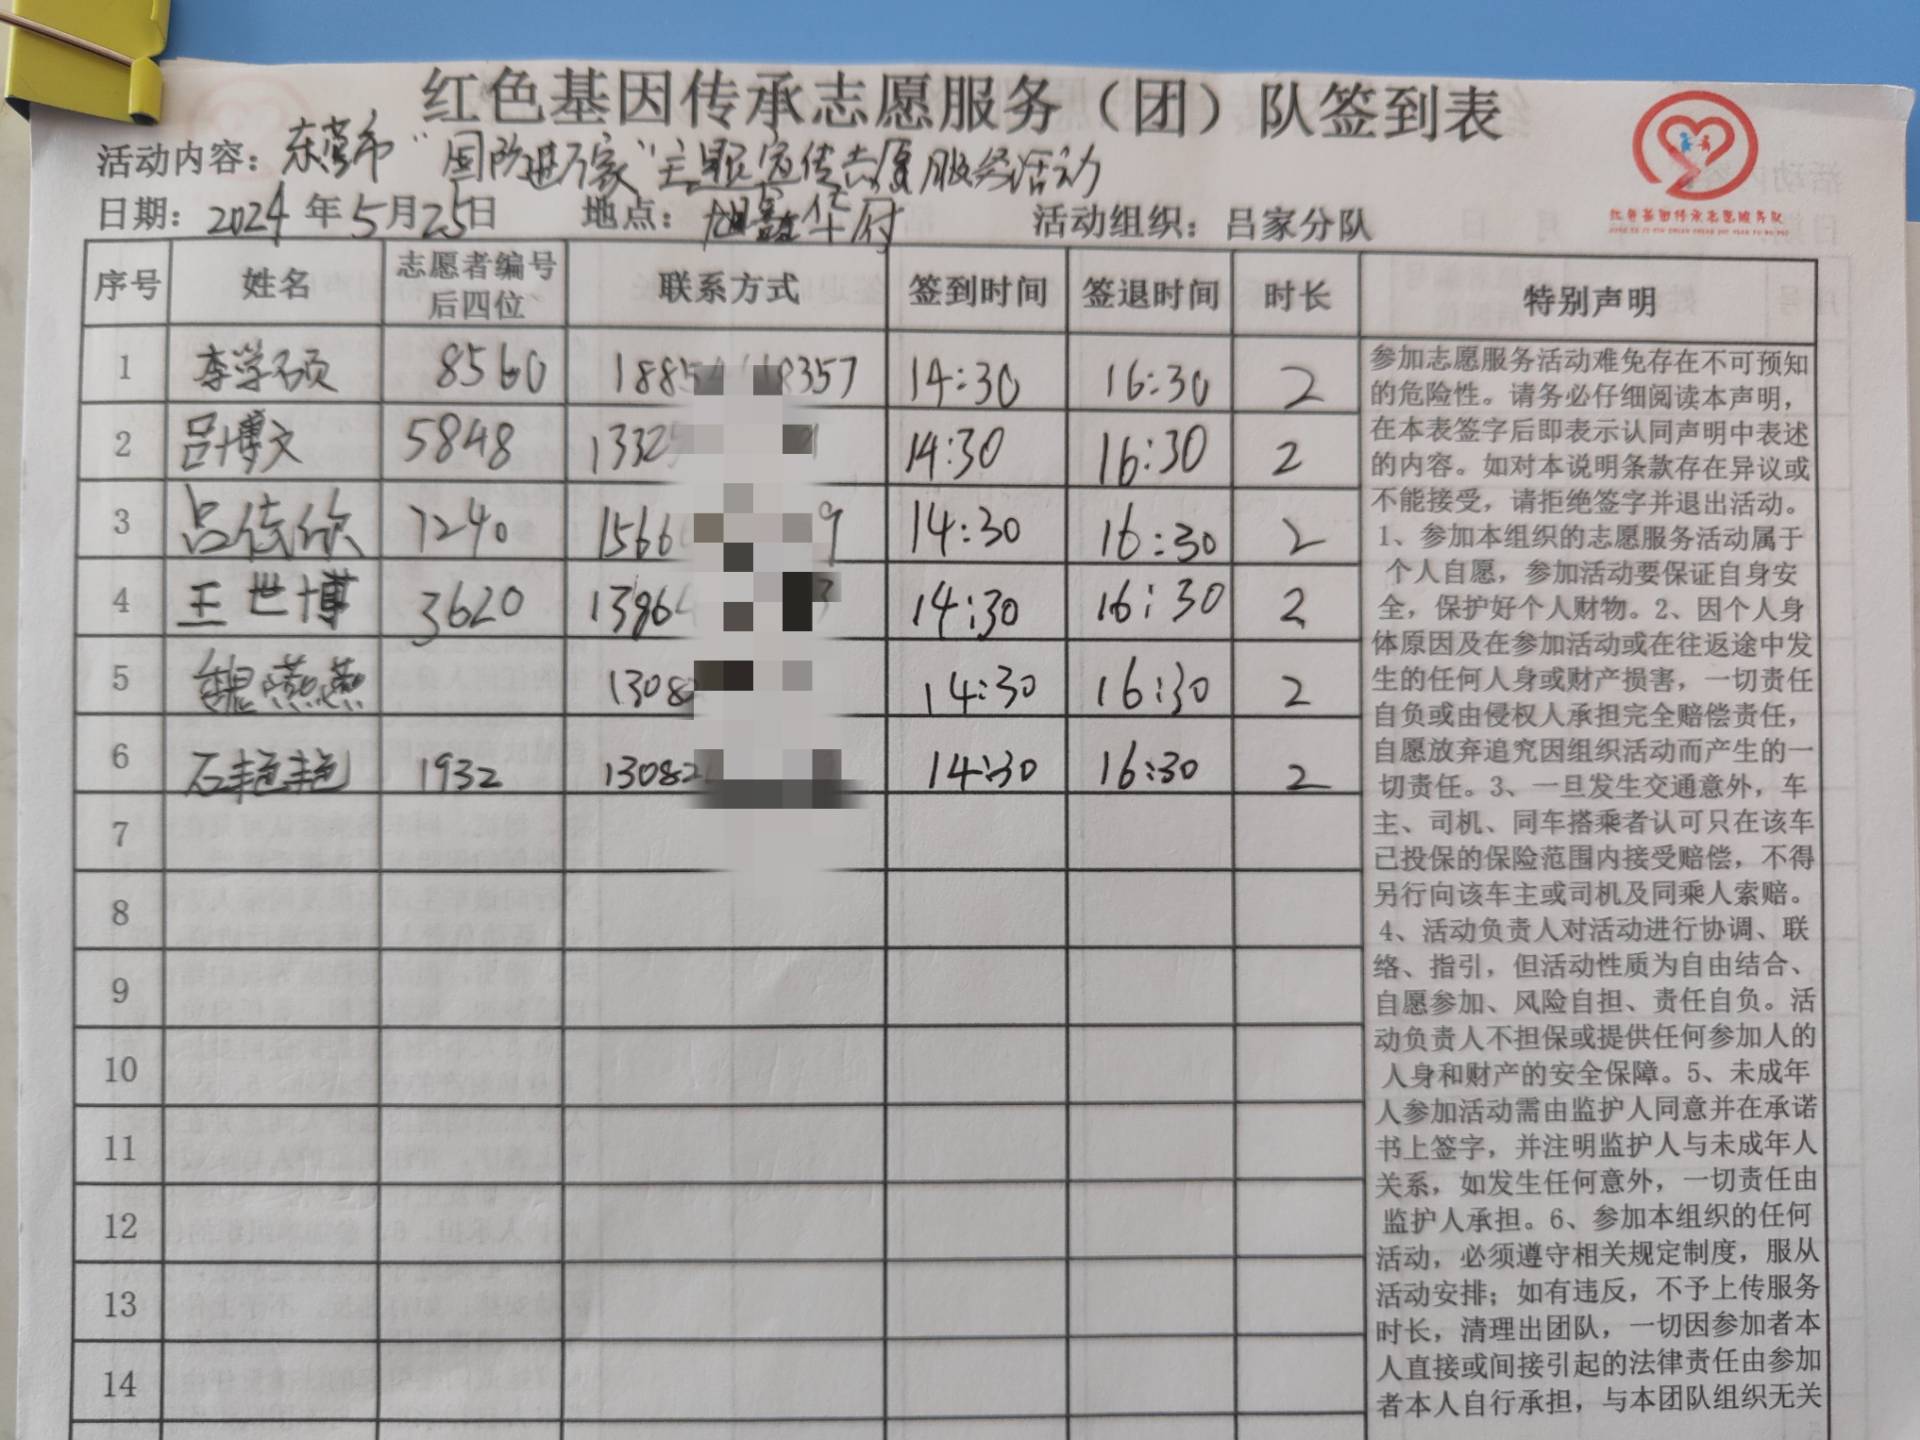 红色基因传承志愿服务（团）队签到表
活动内容：东营市“国防进万家”主题宣传志愿服务活动
日期：2024年5月25日 地点：华府 活动组织：吕家分队
序号 姓名 志愿者编号后四位 联系方式 签到时间 签退时间 时长 特别声明
1 李学硕 8560 14:30 16:30 2
2 吕博文 5848 1332 14:30 16:30 2
3 吕依欣 7240 1566 9 14:30 16:30 2
4 王世博 3620 13964 14:30 16:30 2
5 魏燕燕 1308 14:30 16:30 2
6 石艳艳 1932 13082 14:30 16:30 2
7
8
9
10
11
12
13
14
参加志愿服务活动难免存在不可预知
的危险性。请务必仔细阅读本声明，
在本表签字后即表示认同声明中表述
的内容。如对本说明条款存在异议或
不能接受，请拒绝签字并退出活动。
1、参加本组织的志愿服务活动属于
个人自愿，参加活动要保证自身安
全，保护好个人财物。2、因个人身
体原因及在参加活动或在往返途中发
生的任何人身或财产损害，一切责任
自负或由侵权人承担完全赔偿责任，
自愿放弃追究因组织活动而产生的一
切责任。3、一旦发生交通意外，车
主、司机、同车搭乘者认可只在该车
已投保的保险范围内接受赔偿，不得
另行向该车主或司机及同乘人索赔。
4、活动负责人对活动进行协调、联
络、指引，但活动性质为自由结合、
自愿参加、风险自担、责任自负。活
动负责人不担保或提供任何参加人的
人身和财产的安全保障。5、未成年
人参加活动需由监护人同意并在承诺
书上签字，并注明监护人与未成年人
关系，如发生任何意外，一切责任由
监护人承担。6、参加本组织的任何
活动，必须遵守相关规定制度，服从
活动安排；如有违反，不予上传服务
时长，清理出团队，一切因参加者本
人直接或间接引起的法律责任由参加
者本人自行承担，与本团队组织无关